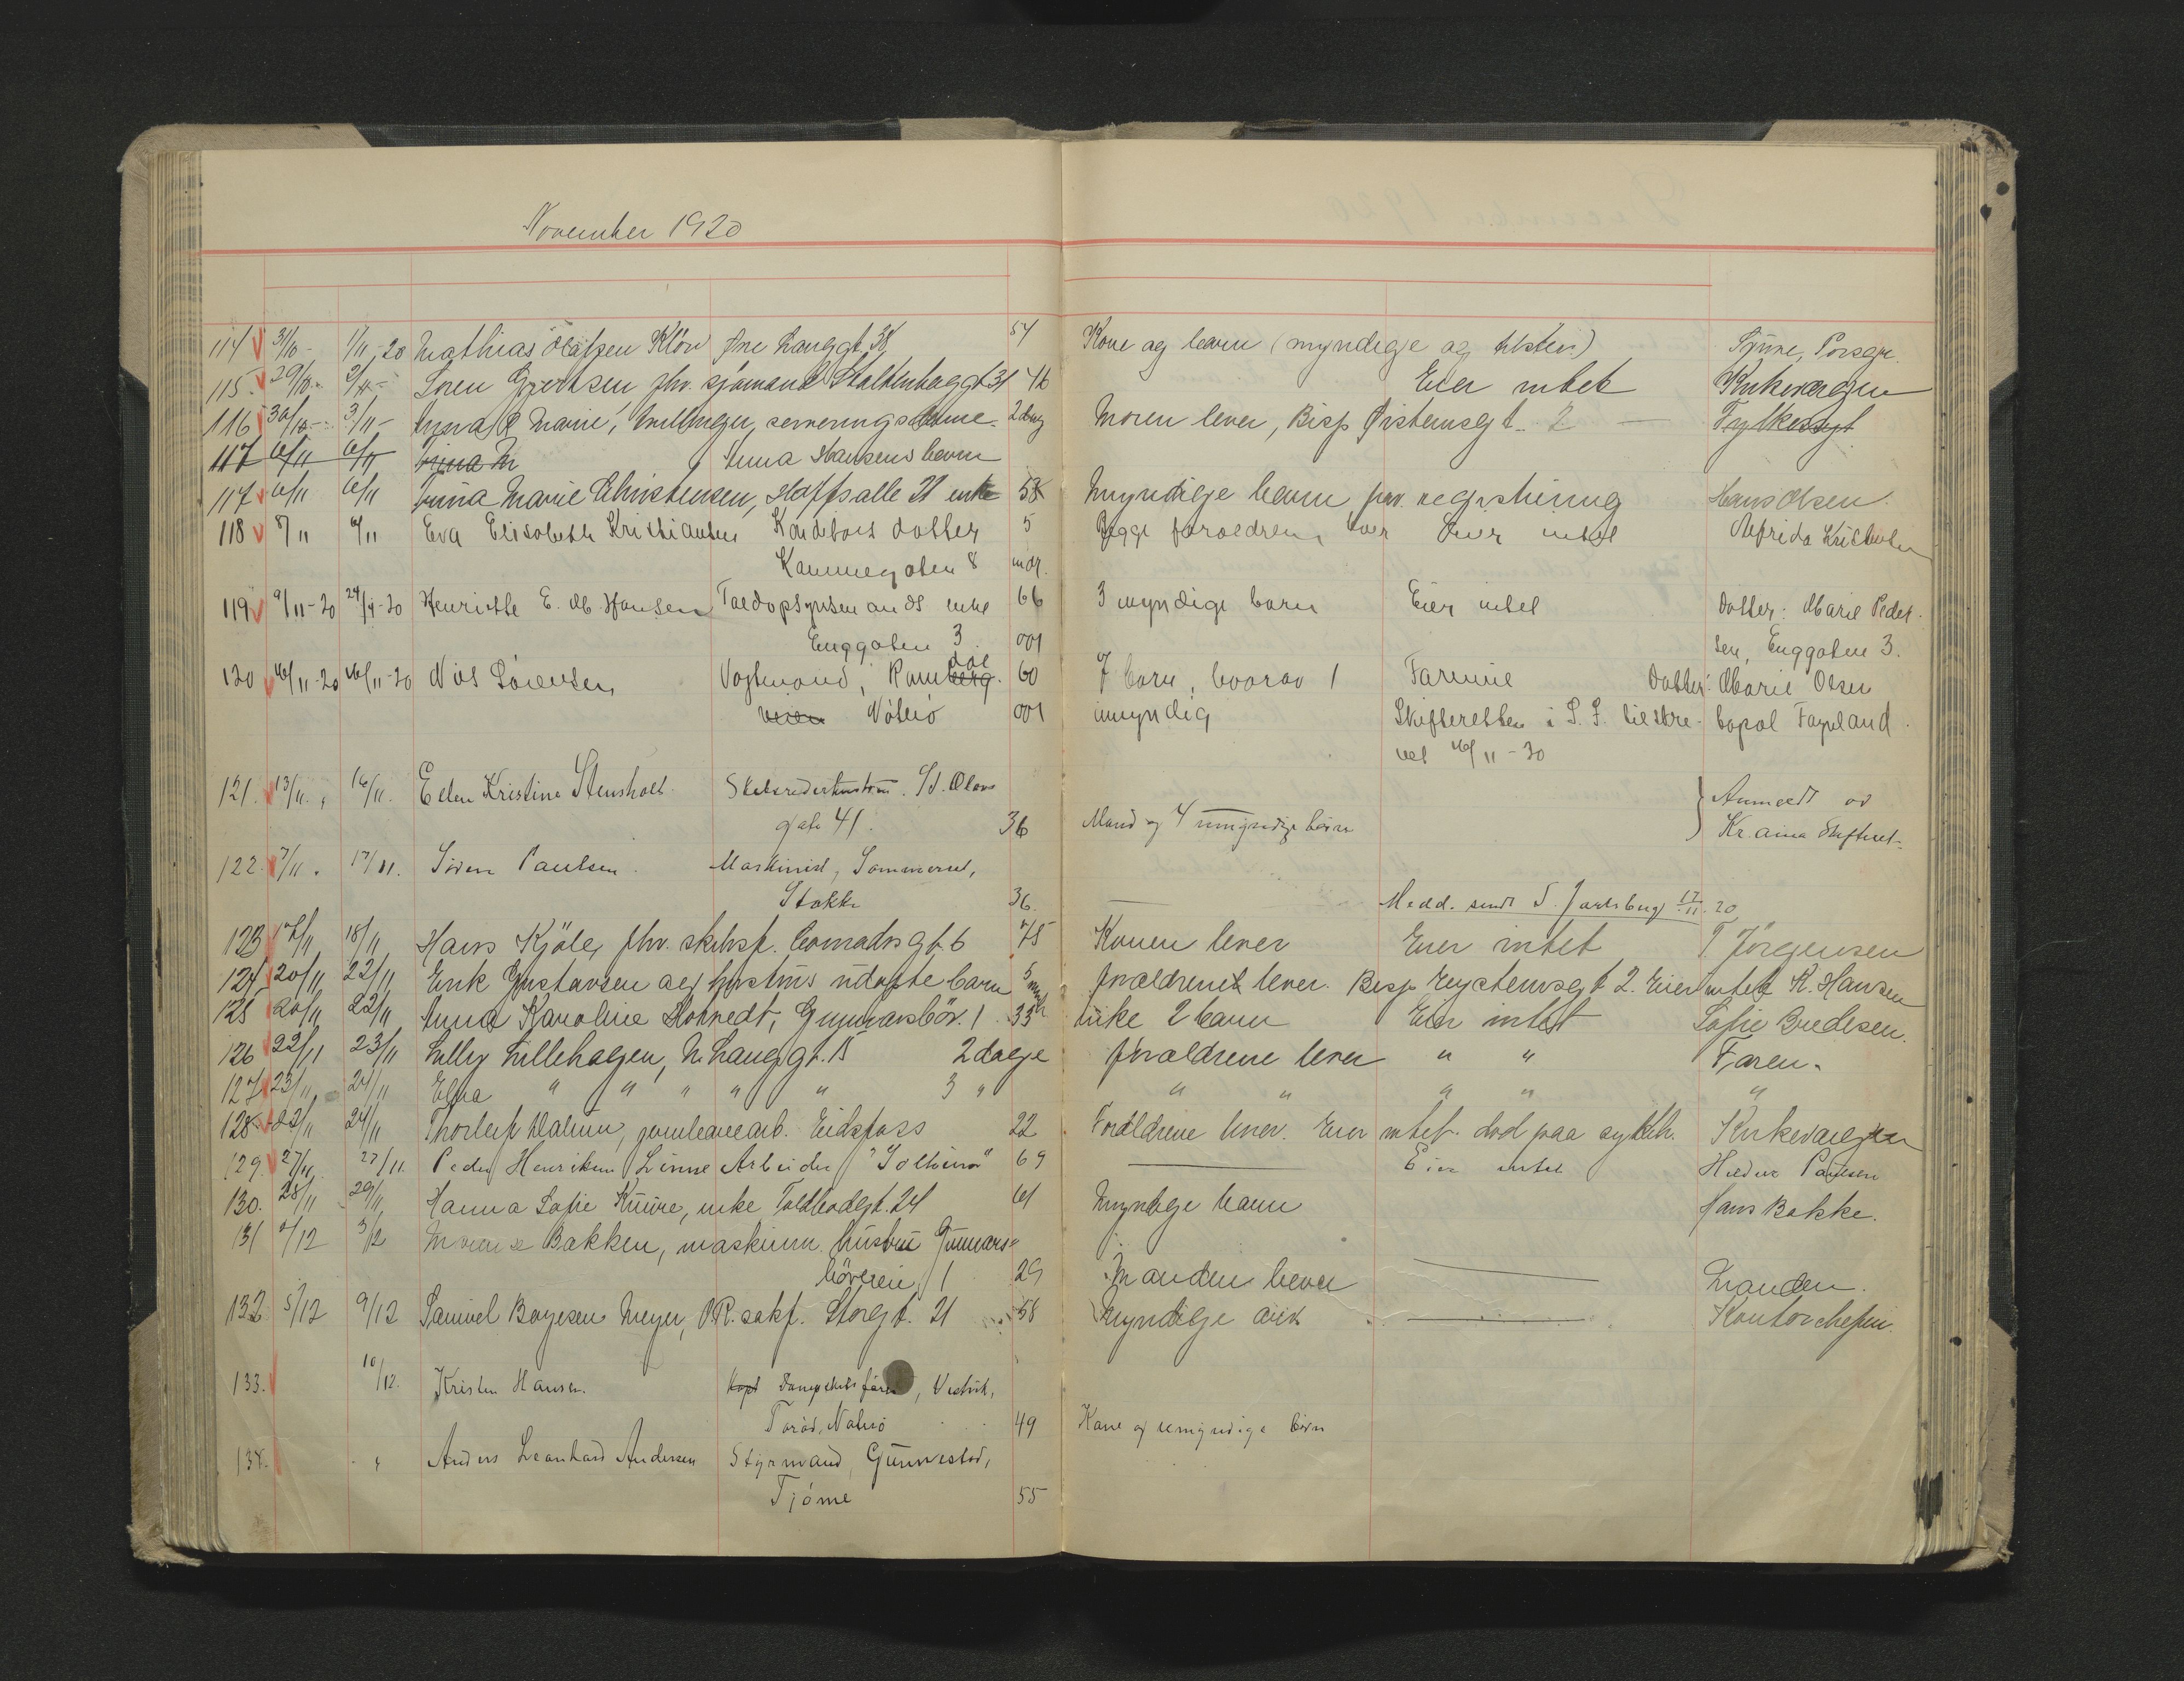 November 1920
114 31/10 - 1/11-20 Mathias Klöv Øvre Langgt. 38 54 Kone og barn (myndige og ) Porsgr.
115. 29/10 - 2/11 - Soren Gjertsen fhv. sjömand 31 46 Eier intet Kirkevergen
116 30/10 - 3/11 - Anna Marie, serveringsdame 2 dag Moren lever, Bisp Øistensgt. 2 Fylkessyk
117 6/11 6/11 M Anna Hansens barn
117 6/11 6/11 Anna Marie Christensen, alle 21 enke 58 Myndige barn, registrering Hans Olsen.
118 8/11 9/11 Eva Elisabeth Kristiansen Konditors datter 5 Begge foraeldrene lever Eier intet Kristiansen
Kammegaten 8 mdr.
119 9/11-20 24/11-20 Henriette E. M. Hansen Toldopsynsmands enke 66 3 myndige barn Eier intet Datter: Marie Peder-
Enggaten 3 001 sen, Enggaten 3.
120 16/11-20 16/11-20 Nils Sörensen Vogtmand, Ramberg dal 60 7 barn, hvorav 1 Formue Datter: Marie Olsen
veien Nöterö 001 umyndig Skifteretten i S. J. tilskre- bopæl Fagerland.
vet 16/11-20
121. 13/11. 16/11. Ellen Kristine Stensholt. Skibsrederhustru. St. Olavs Anmeldt av
gate 41. 36 Mand og 4 umyndige börn Kr.ania Skifteret.
122. 7/11. 17/11. Sören Paulsen. Maskinist, Sommerud,
Stokke 36. Medd. sendt S. Jarlsberg 17/11.20
123 17/11 18/11 Hans Kjöle, fhv. skibsf. Conradis gt. 6 75 Konen lever Eier intet T Jörgensen
124 20/11 22/11 Erik Gustavsen og hustrus udöpte barn 5 foraeldrene lever. Bisp Eystensgt 2. Eier intet K. Hansen
125 20/11 22/11 Anna Karoline, Gunnarsböv. 1 33 2 barn Eier intet Sofie Bredesen.
126 22/11 23/11 Lilly Lillehagen, N. Langgt. 15 2 dage foraeldrene lever " " Faren.
127 23/11 24/11 Elna " " " " " 3 " " " " " "
128 22/11 24/11 Thorleif, jernbanearb. Eidsfoss 22 Foraeldrene lever. Eier intet. död paa sykeh. Kirkevaergen
129. 27/11. 27/11. Peder Henriksen Linne Arbeider "Solheim" 69 Eier intet Paulsen
130. 28/11 29/11 Hanna Sofie, enke Toldbodgt. 24 61 Myndige barn Hans Bakke.
131 2/12 3/12 Bakken, maskinm. hustru Gunnars-
böveien 1 29 Manden lever Manden.
132 5/12 9/12 Samuel Boyesen Meyer, O.R. sakf. Storgt. 21 58 Myndige Kontorchefen.
133. 10/12. Kristen Hansen. Kapt Dampskibsförer, Vestvik,
Toröd, Nöterö 49 Kone og umyndige börn
134. " Anders Leonhard Andersen Styrmand, Gunnestad,
Tjöme 55